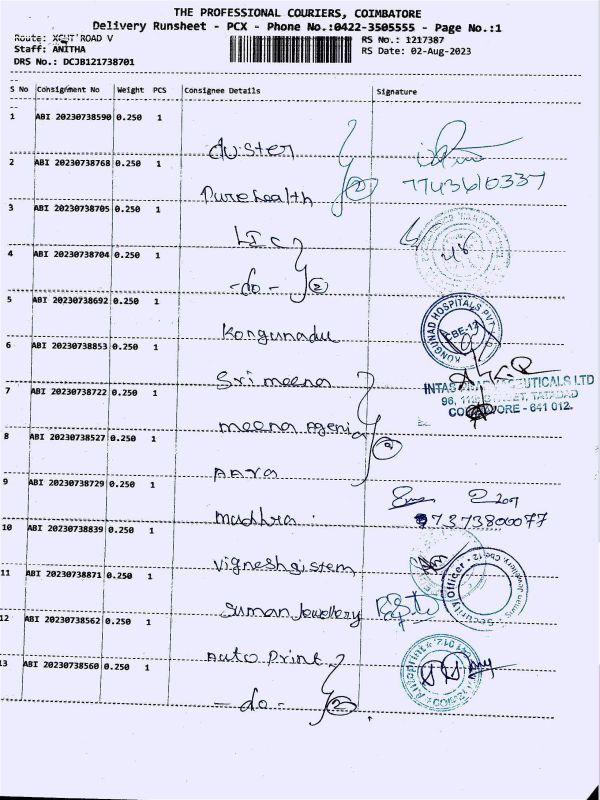 THE PROFESSIONAL COURIERS, COIMBATORE
Delivery Runsheet - PCX - Phone No.:0422-3505555 - Page No.:1
Route: ROAD V
RS No.: 1217387
Staff: ANITHA
RS Date: 02-Aug-2023
DRS No.: DCJB121738701
S No Consignment No Weight PCS Consignee Details Signature
1 ABI 20230738590 0.250 1
duster
2 ABI 20230738768 0.250 1
7743610337
Purehealth 2
3 ABI 20230738705 0.250 1
LIC
4 ABI 20230738704 0.250 1
-do- 2
5 ABI 20230738692 0.250 1
Kongunadu
KONGUNAD HOSPITALS PVT
CBE-12
6 ABI 20230738853 0.250 1
Sri meena
7 ABI 20230738722 0.250 1
INTAS PHARMACEUTICALS LTD
96, STREET, TATABAD
COIMBATORE - 641 012.
meena Agenia
8 ABI 20230738527 0.250 1
AARA
9 ABI 20230738729 0.250 1
madhra
9737380007​7
10 ABI 20230738839 0.250 1
vigneshgistem
11 ABI 20230738871 0.250 1
Suman Jewellery
Security Officer - Cbe-12
Suman Jewellery
12 ABI 20230738562 0.250 1
Auto Print
13 ABI 20230738560 0.250 1
-do- 2
Autoprint